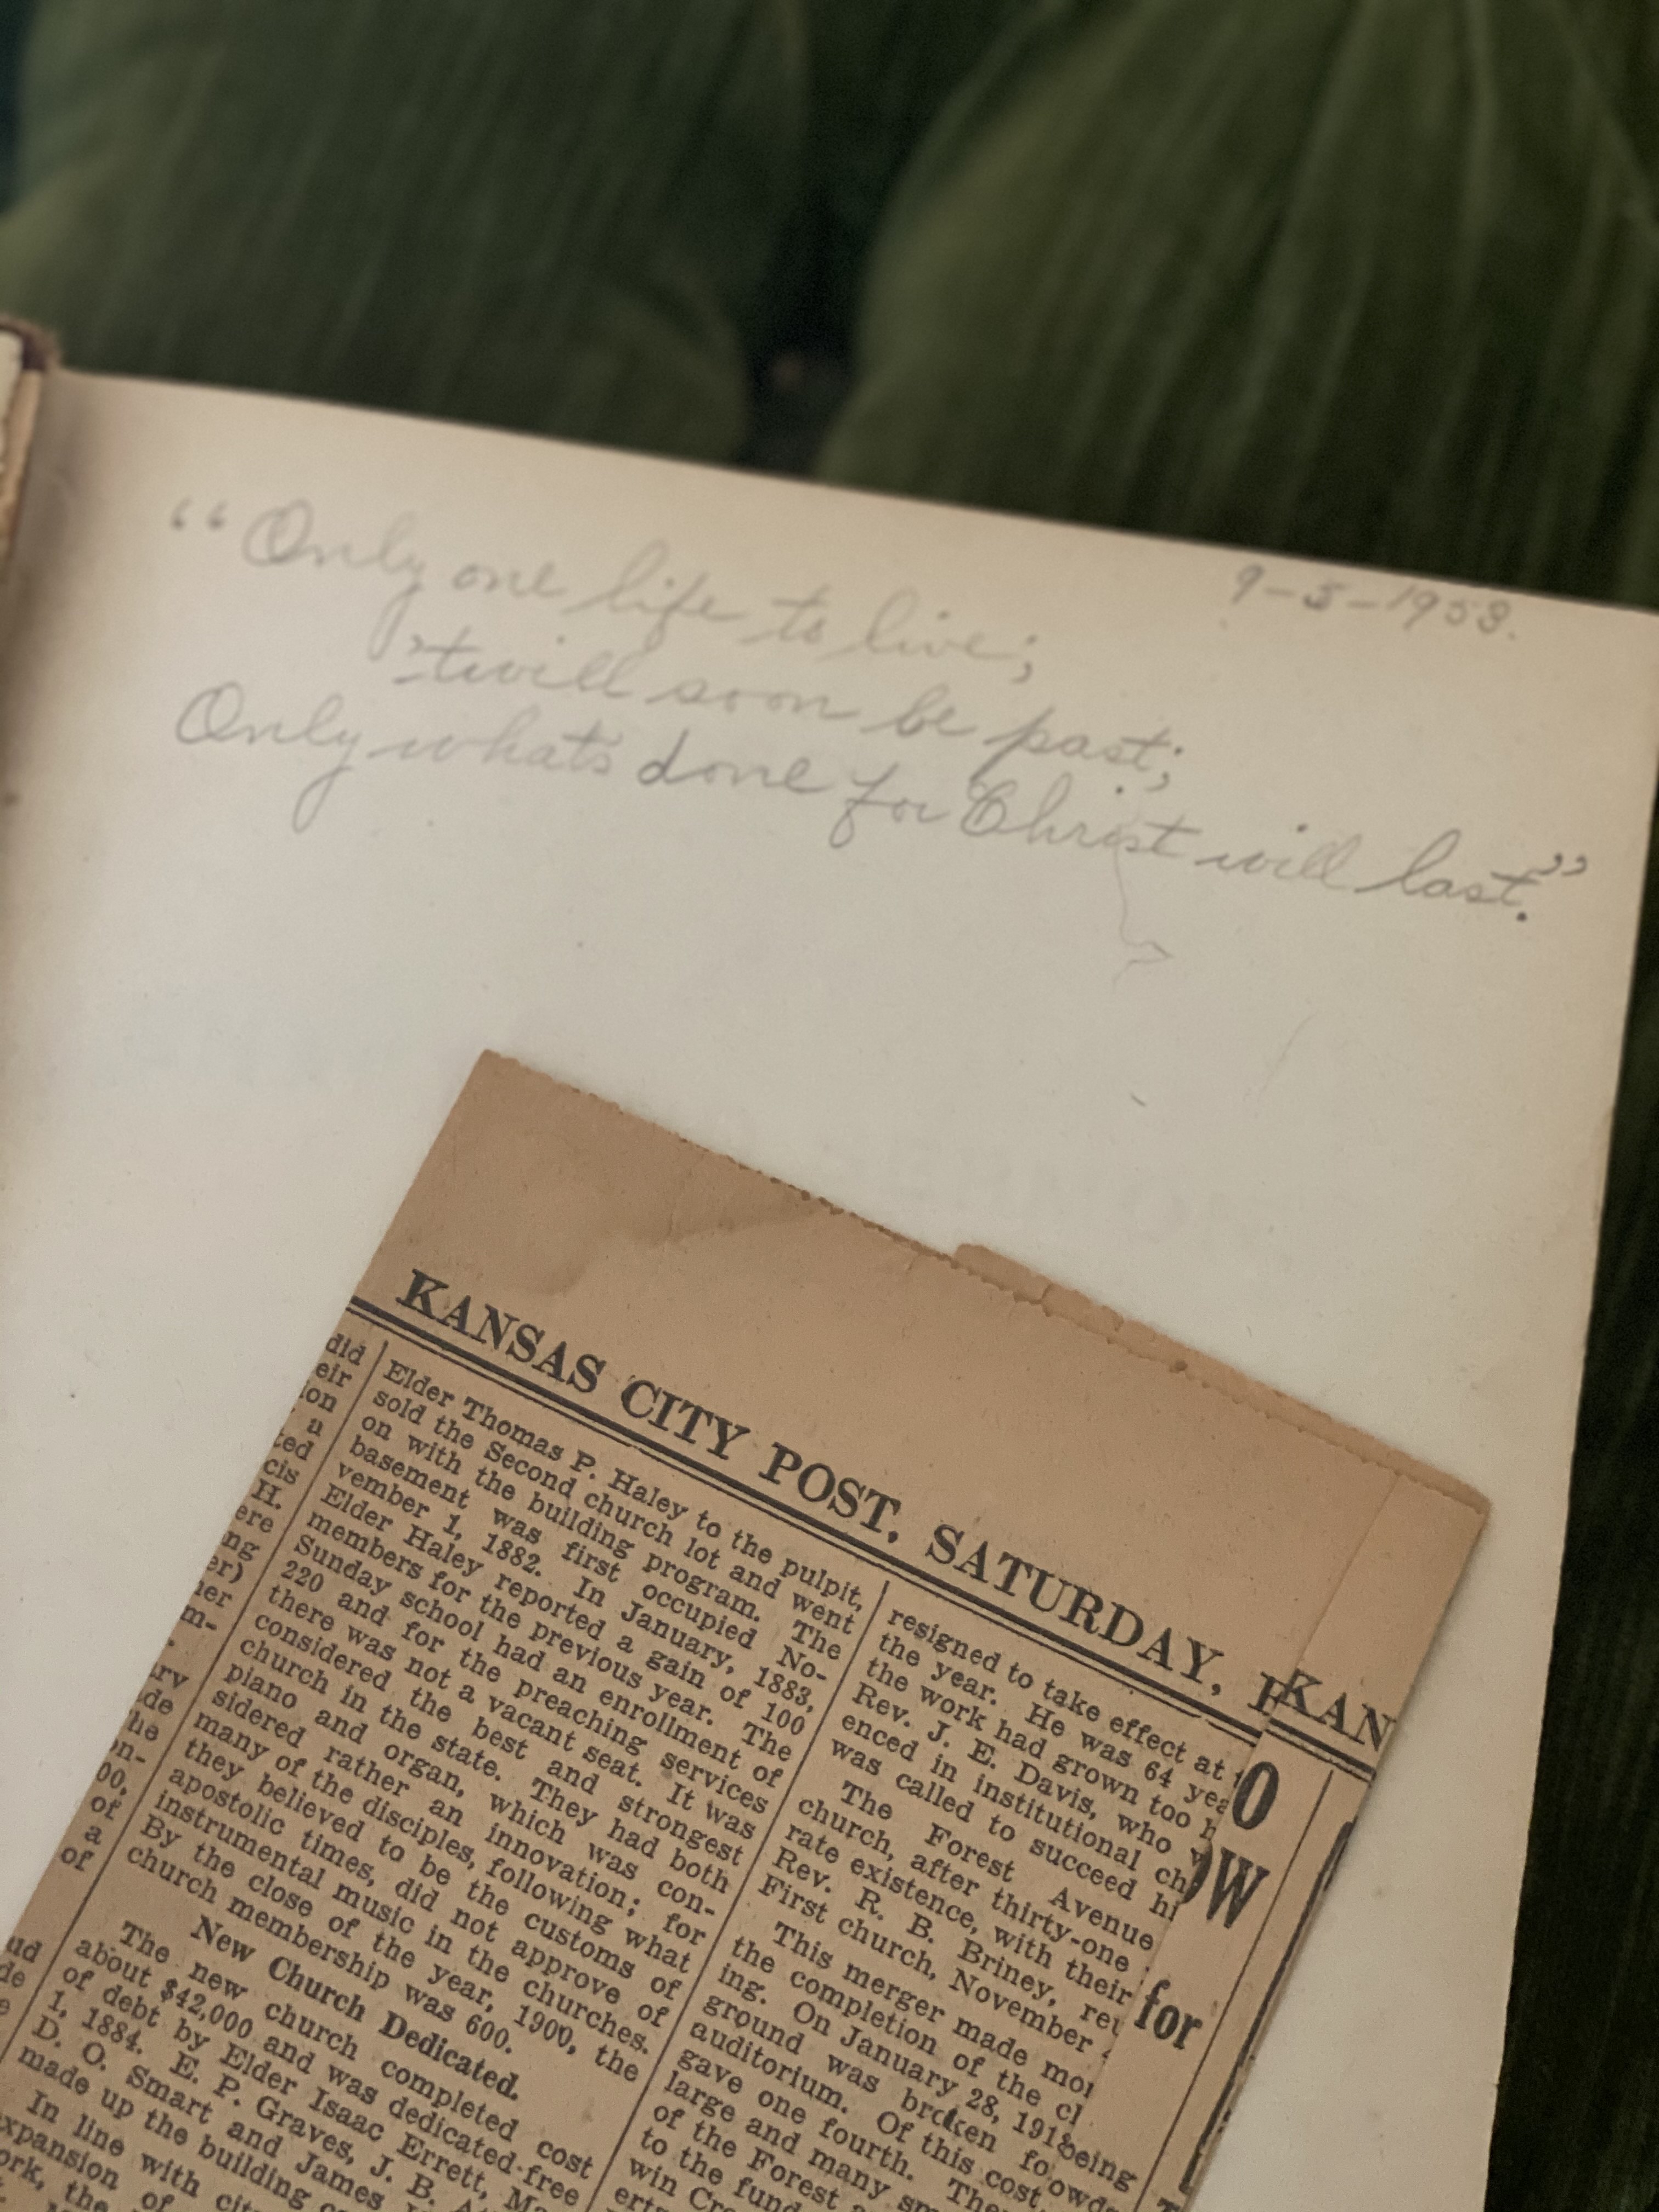 9-3-1953.
“Only one life to live;
'twill soon be past;
Only what's done for Christ will last.”
KANSAS CITY POST, SATURDAY,
KAN
did
eir
ion
a
ted
cis
H.
ere
ng
er)
her
m-
ary
de
he
on-
00,
of
a
of
ud
de
Elder Thomas P. Haley to the pulpit,
sold the Second church lot and went
on with the building program. The
basement was first occupied No-
vember 1, 1882. In January, 1883,
Elder Haley reported a gain of 100
members for the previous year. The
Sunday school had an enrollment of
220 and for the preaching services
there was not a vacant seat. It was
considered the best and strongest
church in the state. They had both
piano and organ, which was con-
sidered rather an innovation; for
many of the disciples, following what
they believed to be the customs of
apostolic times, did not approve of
instrumental music in the churches.
By the close of the year, 1900, the
church membership was 600.
New Church Dedicated.
The new church completed cost
about $42,000 and was dedicated free
of debt by Elder Isaac Errett,
1, 1884. E. P. Graves, J. B.
D. O. Smart and James
made up the building
In line with
expansion of
ork, the
resigned to take effect at
the year. He was 64
the work had grown too
Rev. J. E. Davis, who
enced in institutional
was called to succeed
The Forest Avenue
church, after thirty-one
rate existence, with their
Rev. R. B. Briney,
First church, November
This merger made
the completion of the
ing. On January 28,
ground was broken
auditorium. Of this cost,
gave one fourth.
large and many
of the Forest
to the fund
win
O
OW
for
being